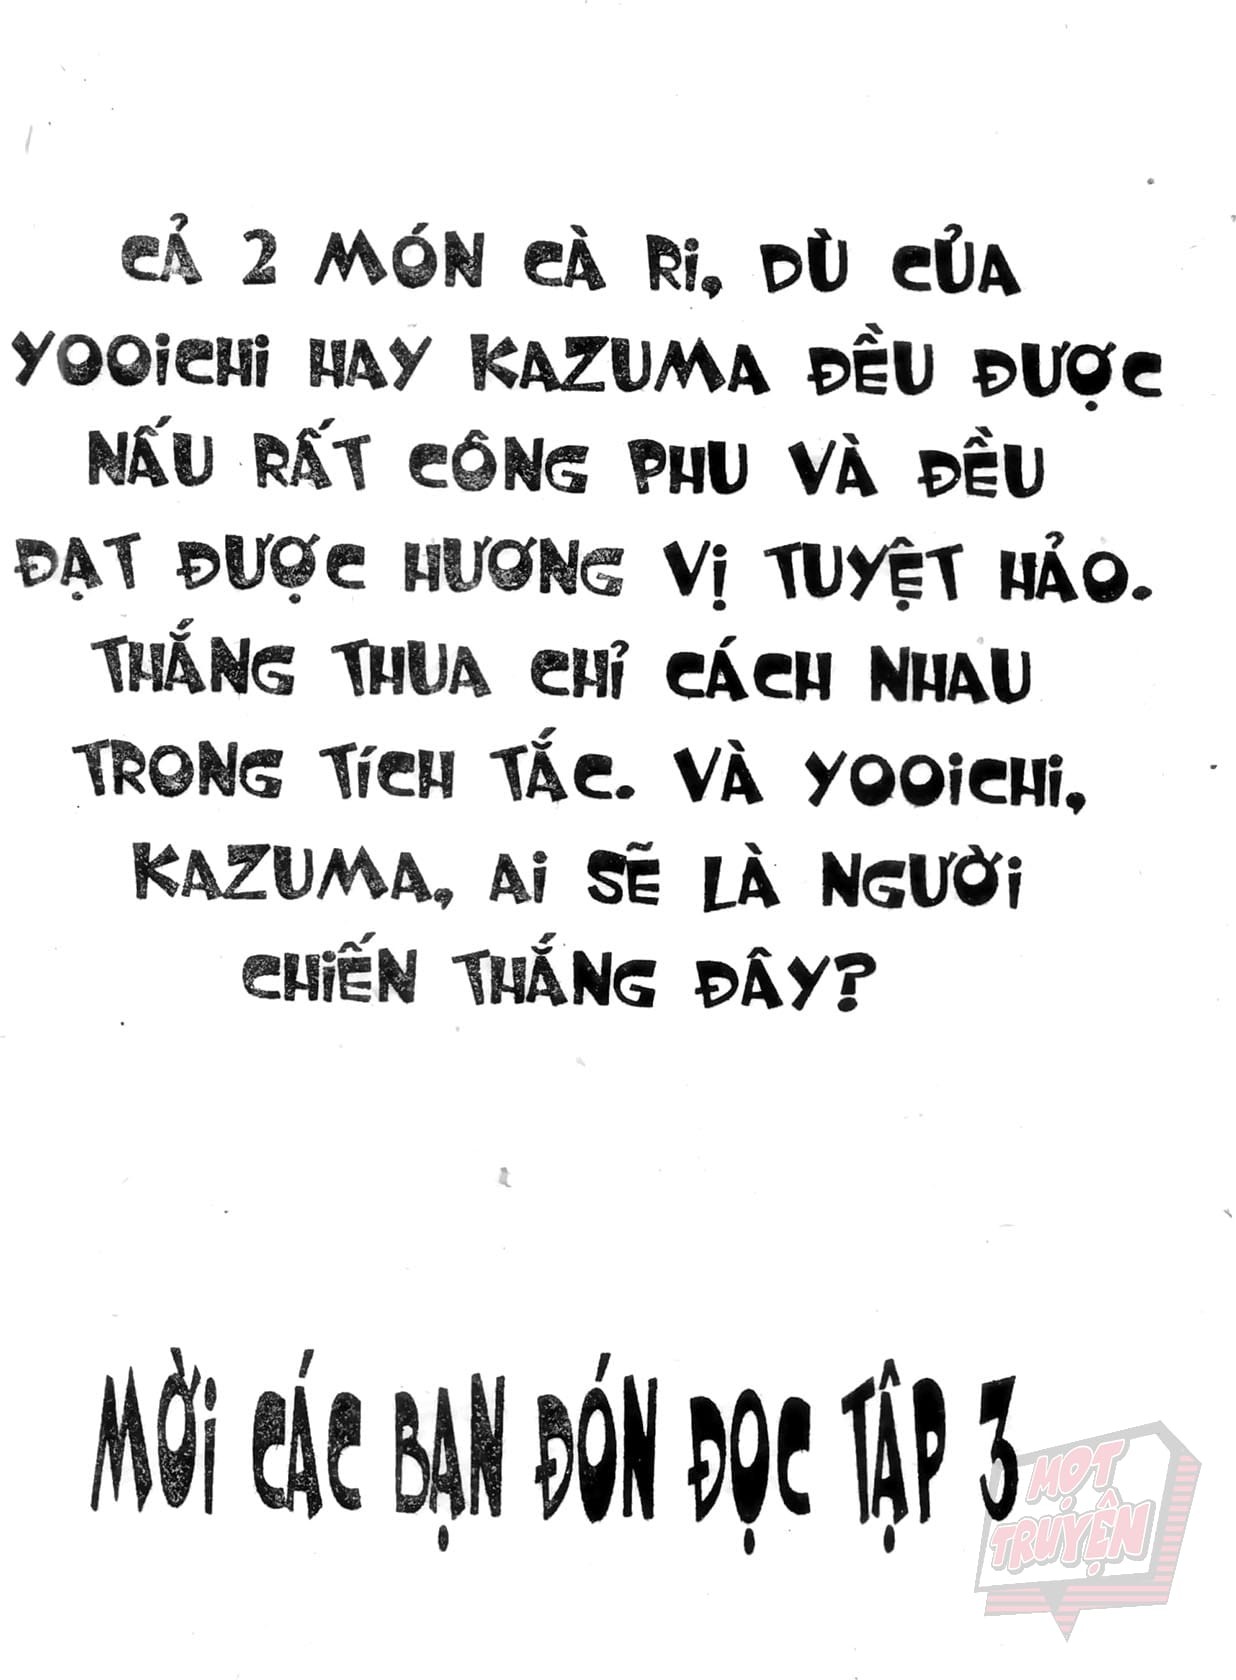 CẢ 2 MÓN CÀ Ri, DÙ CỦA
YOOiCHi HAY KAZUMA ĐỀU ĐƯỢC
NẤU RẤT CÔNG PHU VÀ ĐỀU
ĐẠT ĐƯỢC HƯƠNG VỊ TUYỆT HẢO.
THẮNG THUA CHỈ CÁCH NHAU
TRONG TÍCH TẮC. VÀ YOOiCHi,
KAZUMA, Ai SẼ LÀ NGƯỜi
CHiẾN THẮNG ĐÂY?
MỜi CÁC BẠN ĐÓN ĐỌC TẬP 3
MỌT
TRUYỆN